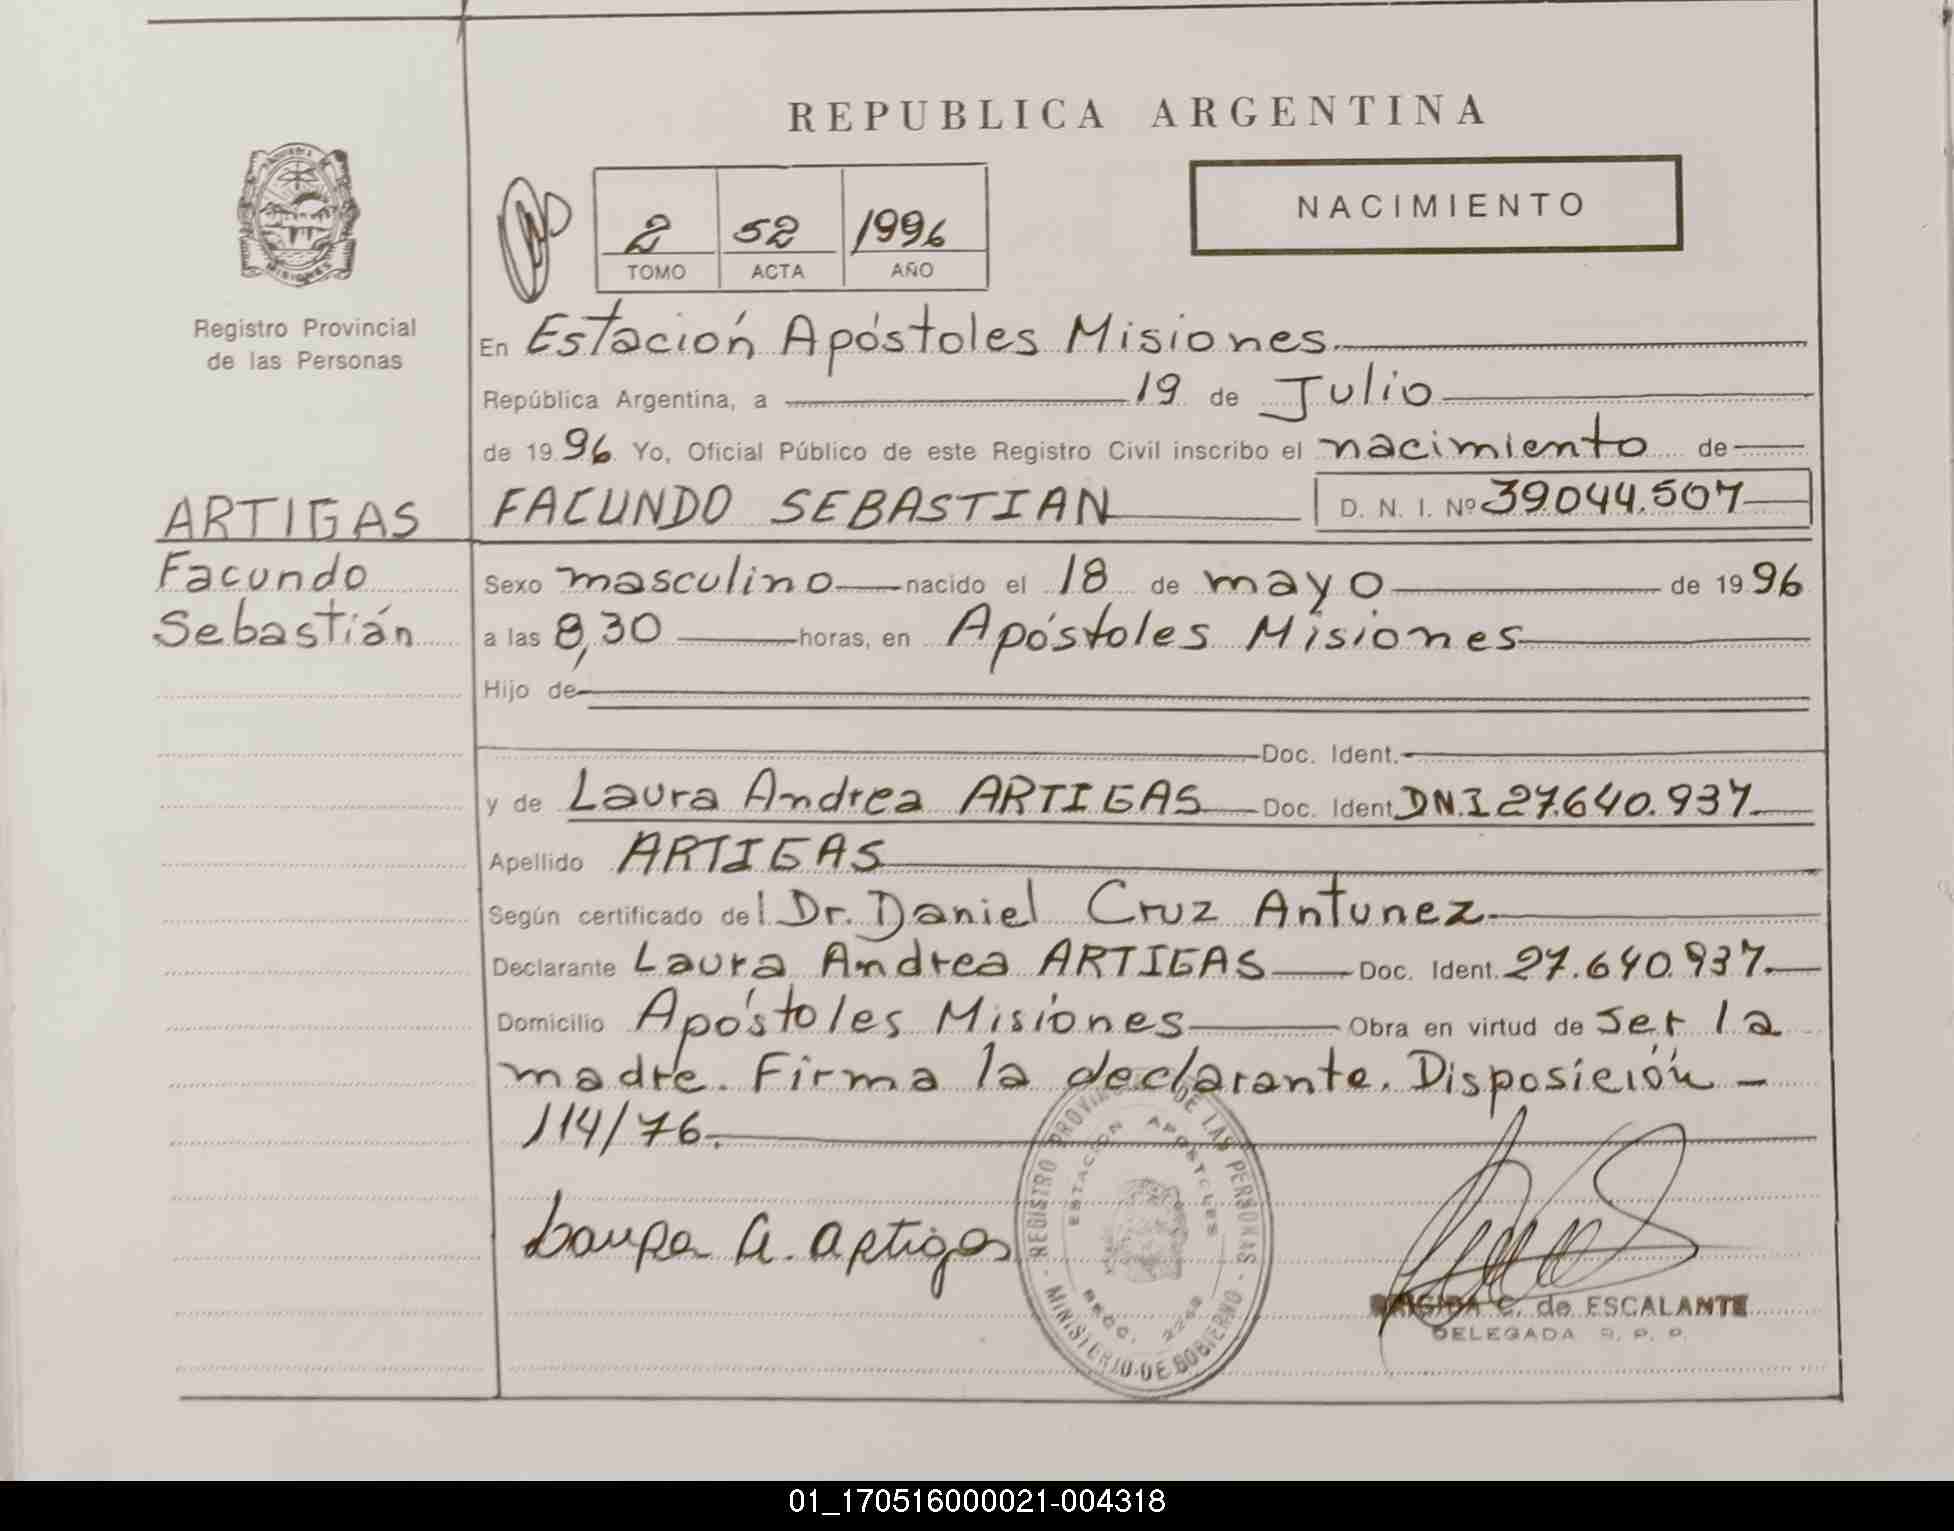 REPUBLICA ARGENTINA
NACIMIENTO
2 52 1996
TOMO ACTA AÑO
MISIONES
Registro Provincial
de las Personas
En Estación Apóstoles Misiones
República Argentina, a 19 de Julio
de 1996 Yo, Oficial Público de este Registro Civil inscribo el nacimiento de
ARTIGAS
Facundo
Sebastián
FACUNDO SEBASTIAN D. N. I. Nº 39.044.507
Sexo masculino nacido el 18 de mayo de 1996
a las 8,30 horas, en Apóstoles Misiones
Hijo de
Doc. Ident.
y de Laura Andrea ARTIGAS Doc. Ident. DN.I 27.640.937
Apellido ARTIGAS
Según certificado del Dr. Daniel Cruz Antunez
Declarante Laura Andrea ARTIGAS Doc. Ident. 27.640.937.
Domicilio Apóstoles Misiones Obra en virtud de ser la
madre. Firma la declarante. Disposición
114/76.
Laura A. Artigas
REGISTRO PROVINCIAL DE LAS PERSONAS
ESTACION APOSTOLES
MINISTERIO DE GOBIERNO
C. de ESCALANTE
DELEGADA R. P. P.
01_170516000021-004318